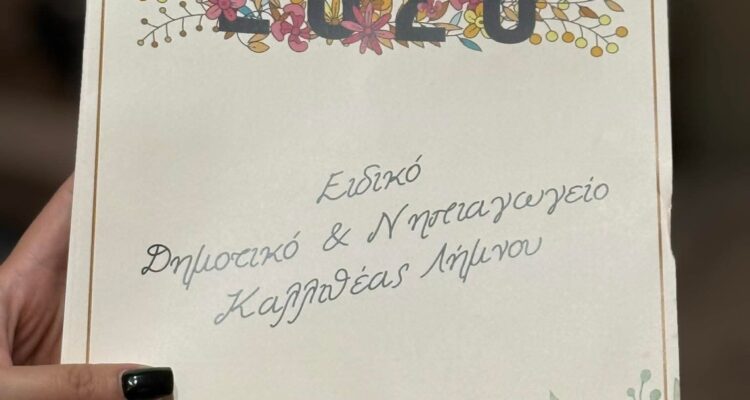 Ειδικό
Δημοτικό & Νηπιαγωγείο
Καλλιθέας Λήμνου